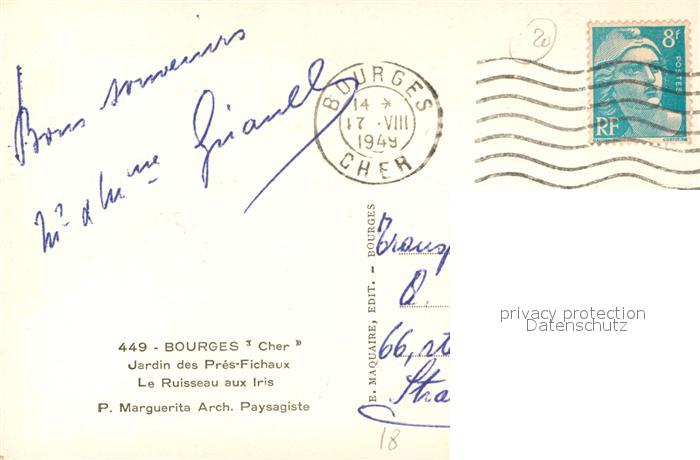 Bons souvenirs
Mr & Mme
BOURGES
14 *
17 · VIII
1949
CHER
20
8f
POSTES
RF
449 - BOURGES « Cher »
Jardin des Prés-Fichaux
Le Ruisseau aux Iris
P. Marguerita Arch. Paysagiste
E. MAQUAIRE, EDIT. — BOURGES
Transp
O.
66, rte
Stra
18
privacy protection
Datenschutz